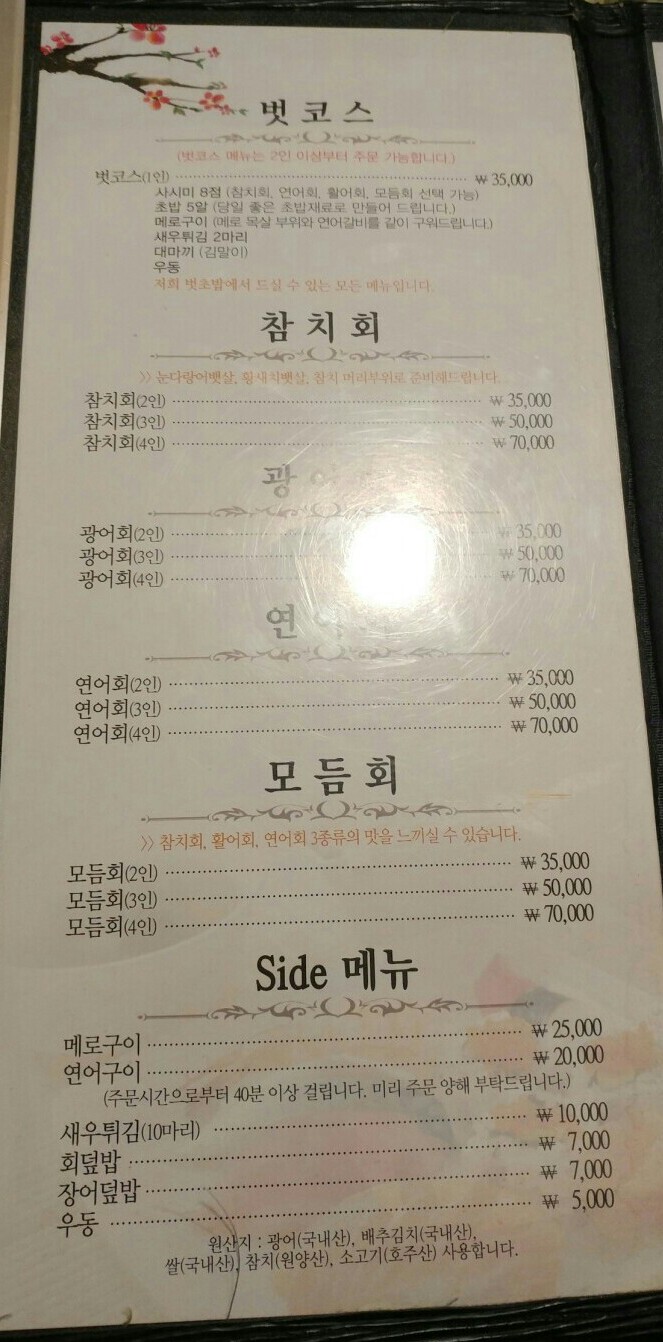 벗코스
(벗코스 메뉴는 2인 이상부터 주문 가능합니다.)
벗코스(1인) ₩ 35,000
사시미 8점 (참치회, 연어회, 활어회, 모듬회 선택 가능)
초밥 5알 (당일 좋은 초밥재료로 만들어 드립니다.)
메로구이 (메로 목살 부위와 연어갈비를 같이 구워드립니다.)
새우튀김 2마리
대마끼 (김말이)
우동
저희 벗초밥에서 드실 수 있는 모든 메뉴입니다.
참치회
>> 눈다랑어뱃살, 황새치뱃살, 참치 머리부위로 준비해드립니다.
참치회(2인) ₩ 35,000
참치회(3인) ₩ 50,000
참치회(4인) ₩ 70,000
광어
광어회(2인) ₩ 35,000
광어회(3인) ₩ 50,000
광어회(4인) ₩ 70,000
연어
연어회(2인) ₩ 35,000
연어회(3인) ₩ 50,000
연어회(4인) ₩ 70,000
모듬회
>> 참치회, 활어회, 연어회 3종류의 맛을 느끼실 수 있습니다.
모듬회(2인) ₩ 35,000
모듬회(3인) ₩ 50,000
모듬회(4인) ₩ 70,000
Side 메뉴
메로구이 ₩ 25,000
연어구이 ₩ 20,000
(주문시간으로부터 40분 이상 걸립니다. 미리 주문 양해 부탁드립니다.)
새우튀김(10마리) ₩ 10,000
회덮밥 ₩ 7,000
장어덮밥 ₩ 7,000
우동 ₩ 5,000
원산지 : 광어(국내산), 배추김치(국내산),
쌀(국내산), 참치(원양산), 소고기(호주산) 사용합니다.